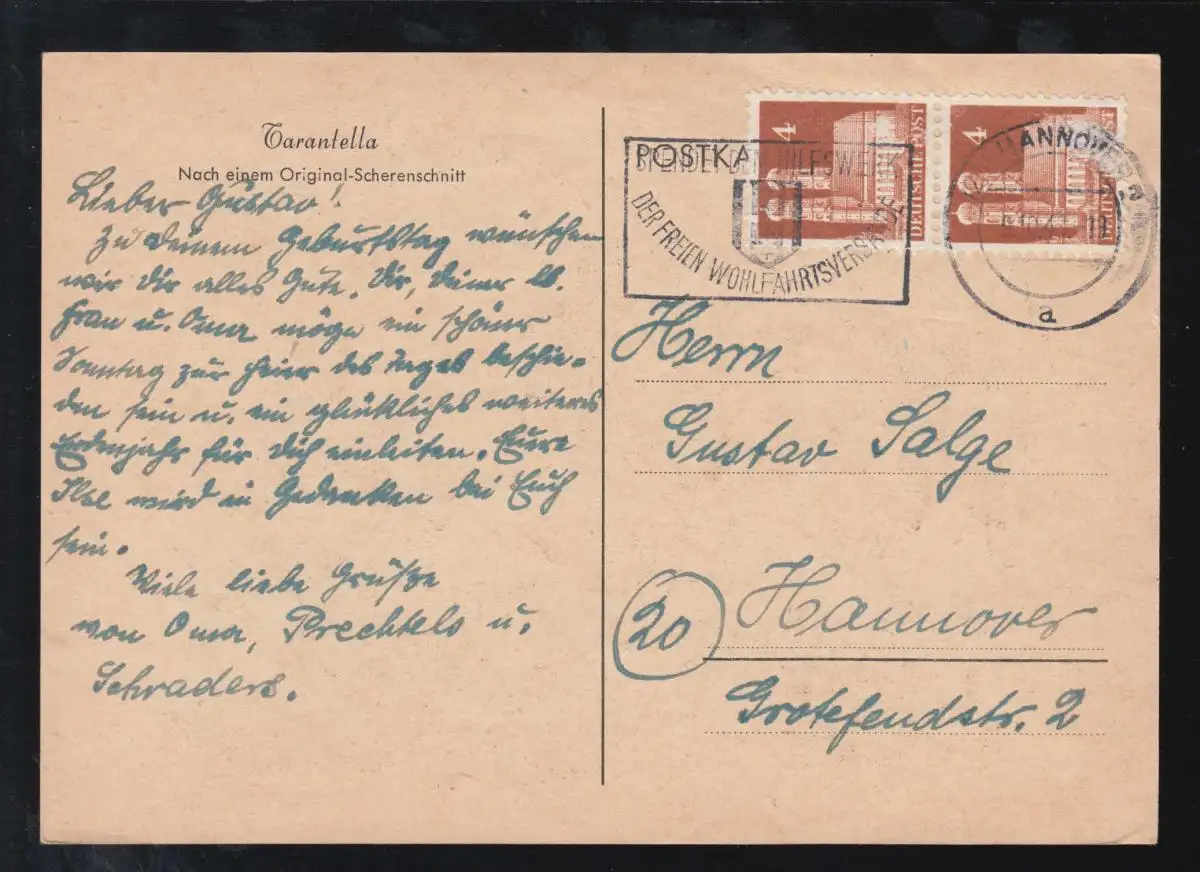 Tarantella
Nach einem Original-Scherenschnitt
Lieber Gustav!
Zu Deinem Geburtstag wünschen
wir Dir alles Gute. Dir, Deiner lb.
Frau u. Oma möge ein schöner
Sonntag zur Feier des Tages beschie-
den sein u. ein glückliches weiteres
Erdenjahr für Dich einleiten. Eure
Ilse wird in Gedanken bei Euch
sein.
Viele liebe Grüße
von Oma, Prechtels u.
Schraders.
4
DEUTSCHE POST
4
DEUTSCHE POST
POSTKA
SPENDET DEM HILFSWERK
DER FREIEN WOHLFAHRTSVERBÄNDE
HANNOVER
a
Herrn
Gustav Salge
20
Hannover
Grotefendstr. 2